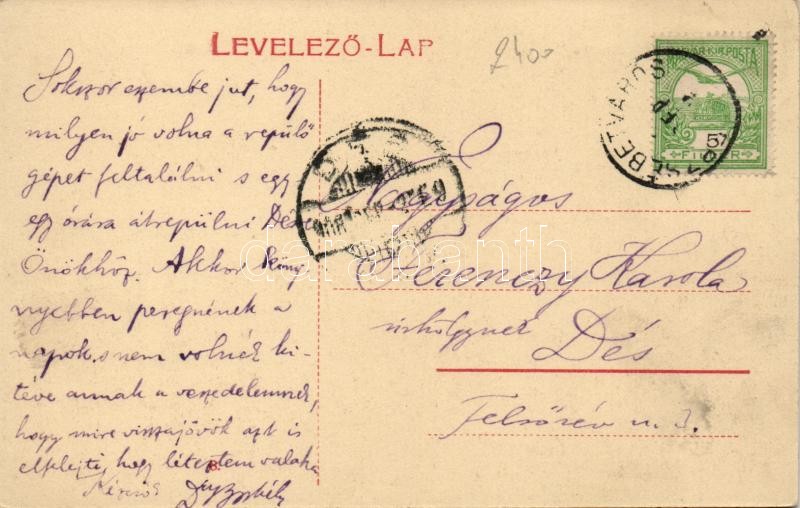 LEVELEZŐ-LAP
2400
MAGYAR KIR. POSTA
5
FILLÉR
ERZSÉBETVÁROS
DÉS
Sokszor eszembe jut, hogy
milyen jó volna a repülő
gépet feltalálni s egy
egy órára átrepülni Désre
Önökhöz. Akkor köny-
nyebben peregnének a
napok, s nem volnék ki-
téve annak a veszedelemnek,
hogy mire visszajövök azt is
elfelejti, hogy léteztem valaha
Nagyságos
Ferenczy Karola
úrhölgynek
Dés
Felsőrév u. 3.
darabanth